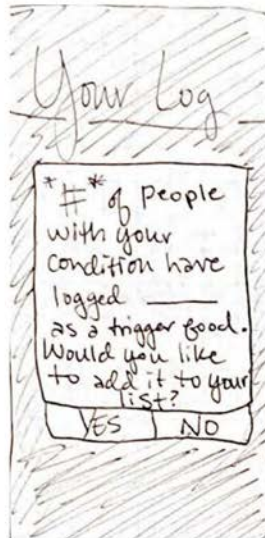 Your Log
*#* of people
with your
condition have
logged ____
as a trigger food.
Would you like
to add it to your
list?
YES NO